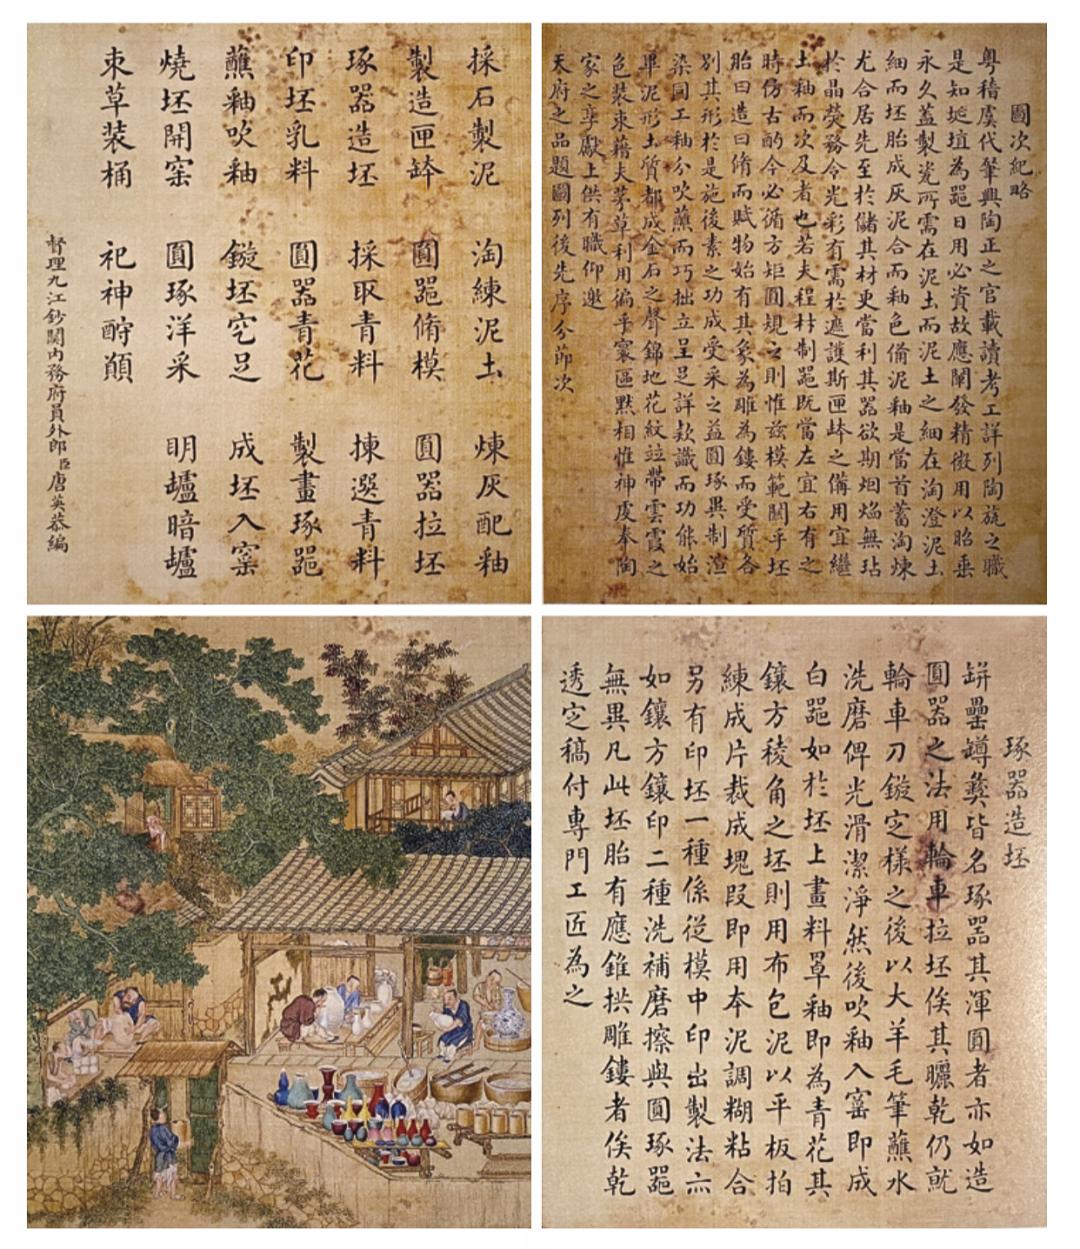 圖次紀略
粵稽虞代肇興陶正之官載讀考工詳列陶旊之職
是知埏埴為噐日用必資故應闡發精微用以昭垂
永久蓋製瓷所需在泥土而泥土之細在淘澄泥土
細而坯胎成灰泥合而釉色備泥釉是當首蓄淘煉
尤合居先至於儲其材更當利其噐欲期烟焰無玷
於晶熒務令光彩有需於遮護斯匣缽之備用宜繼
土釉而次及者也若夫程材制噐既當左宜右有之
時仿古酌今必循方矩圓規之則惟兹模範關乎坯
胎曰造曰脩而賦物始有其象為雕為鏤而受質各
別其形於是施後素之功成受采之益圓琢異制渲
染同工釉分吹蘸而巧拙立呈足詳欵識而功能始
畢泥形土質都成金石之聲錦地花紋竝帶雲霞之
色裝束藉夫茅草利用徧乎寰區黙相惟神虔奉陶
家之享獻上供有職仰邀
天府之品題圖列後先序分節次
採石製泥 淘練泥土 煉灰配釉
製造匣缽 圓噐脩模 圓器拉坯
琢器造坯 採取青料 揀選青料
印坯乳料 圓器青花 製畫琢噐
蘸釉吹釉 鏇坯穵足 成坯入窯
燒坯開窯 圓琢洋采 明爐暗爐
束草装桶 祀神酧願
督理九江鈔關內務府員外郎臣唐英恭編
琢器造坯
缾罍罇彝皆名琢器其渾圓者亦如造
圓器之法用輪車拉坯俟其曬乾仍就
輪車刀鏇定樣之後以大羊毛筆蘸水
洗磨俾光滑潔淨然後吹釉入窰即成
白噐如於坯上畫料罩釉即為青花其
鑲方稜角之坯則用布包泥以平板拍
練成片裁成塊段即用本泥調糊粘合
另有印坯一種係從模中印出製法亦
如鑲方鑲印二種洗補磨擦與圓琢噐
無異凡此坯胎有應錐拱雕鏤者俟乾
透定稿付專門工匠為之